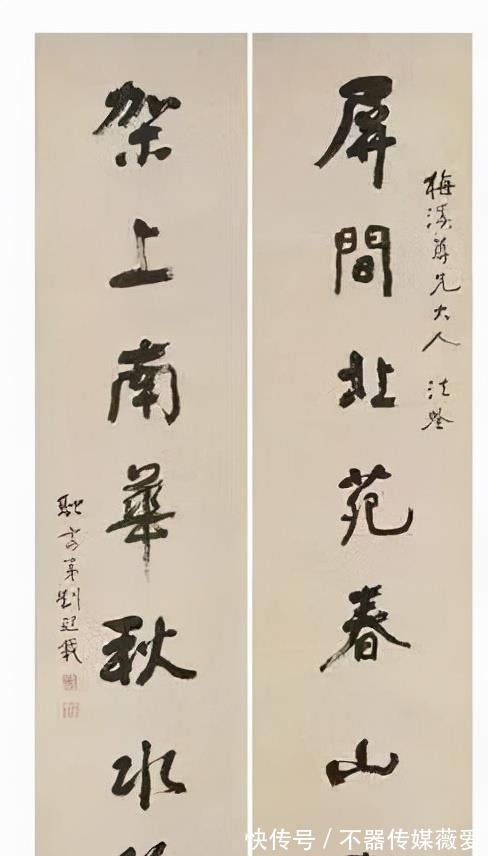 梅尊兄大人 法鑒
屏間北苑春山
架上南華秋水
融齋弟劉熙載
快传号 / 不器传媒薇爱